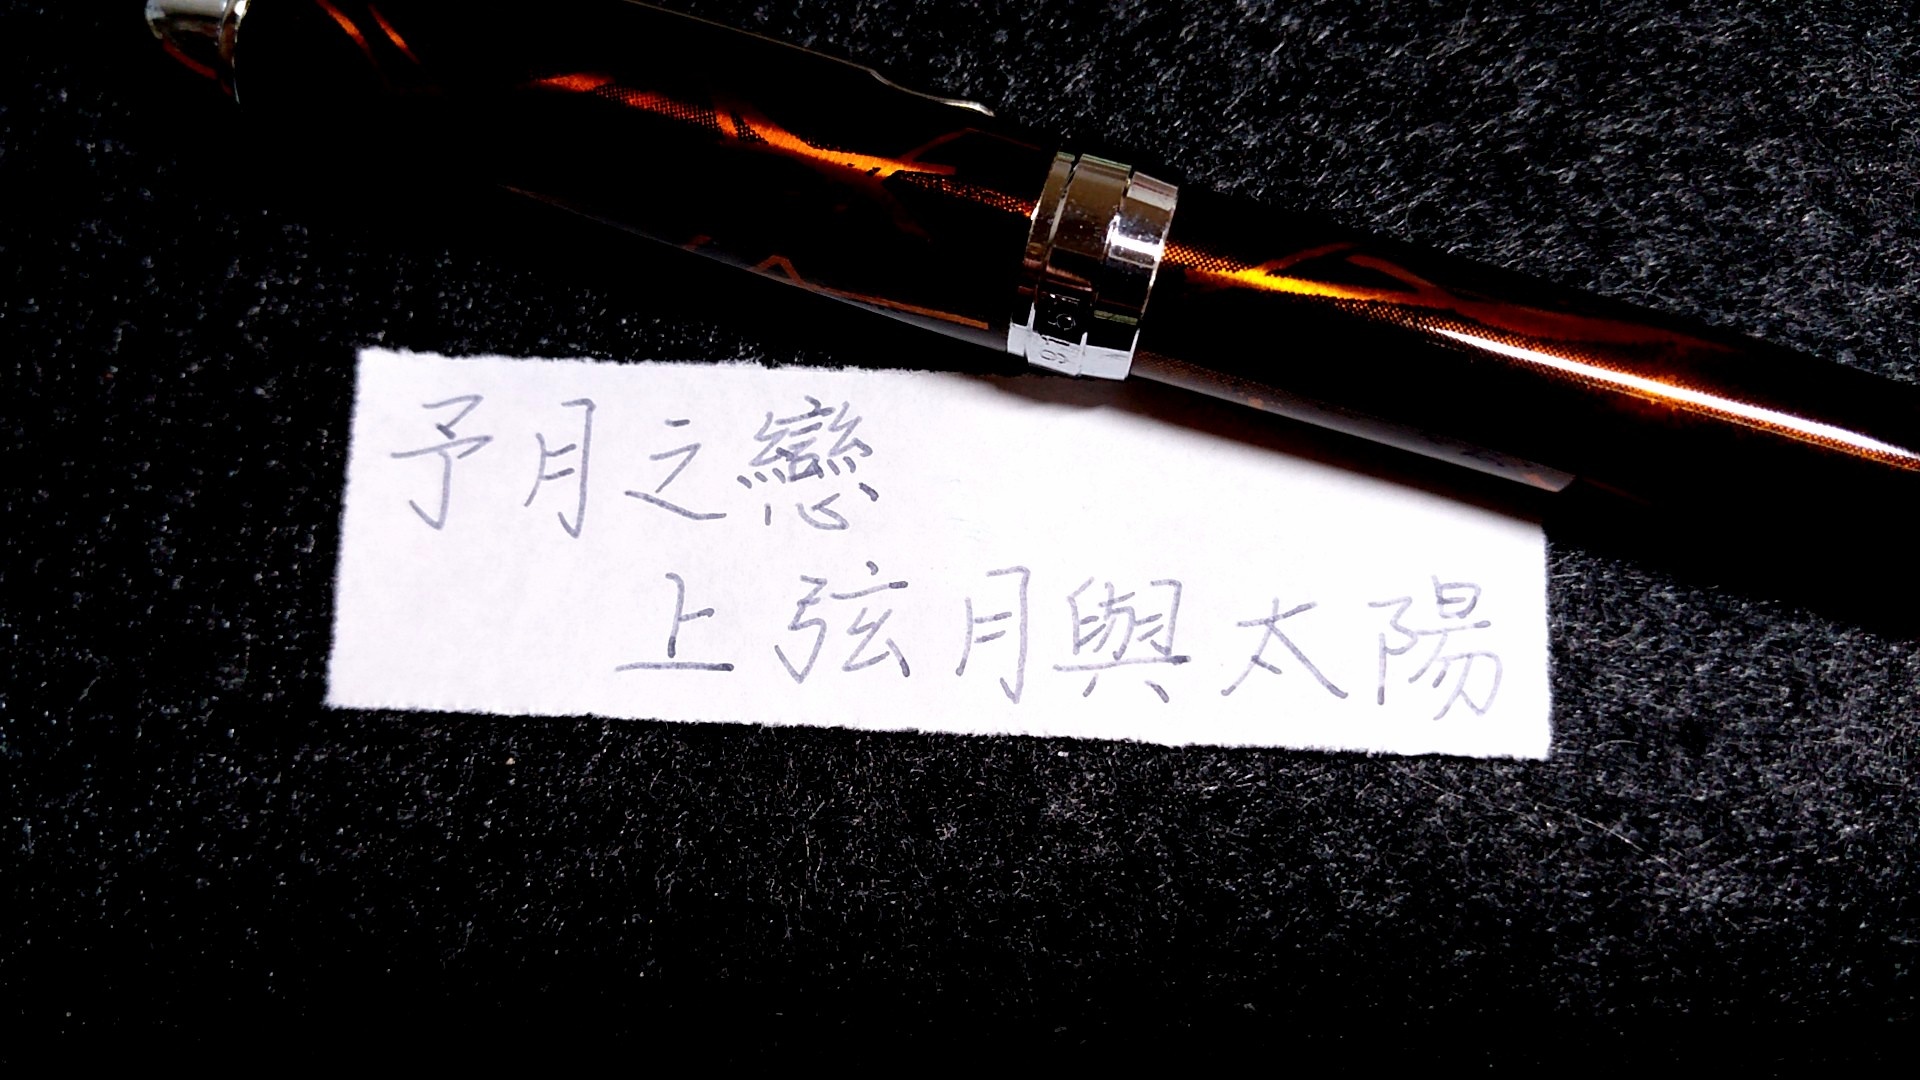 予月之戀
上弦月與太陽